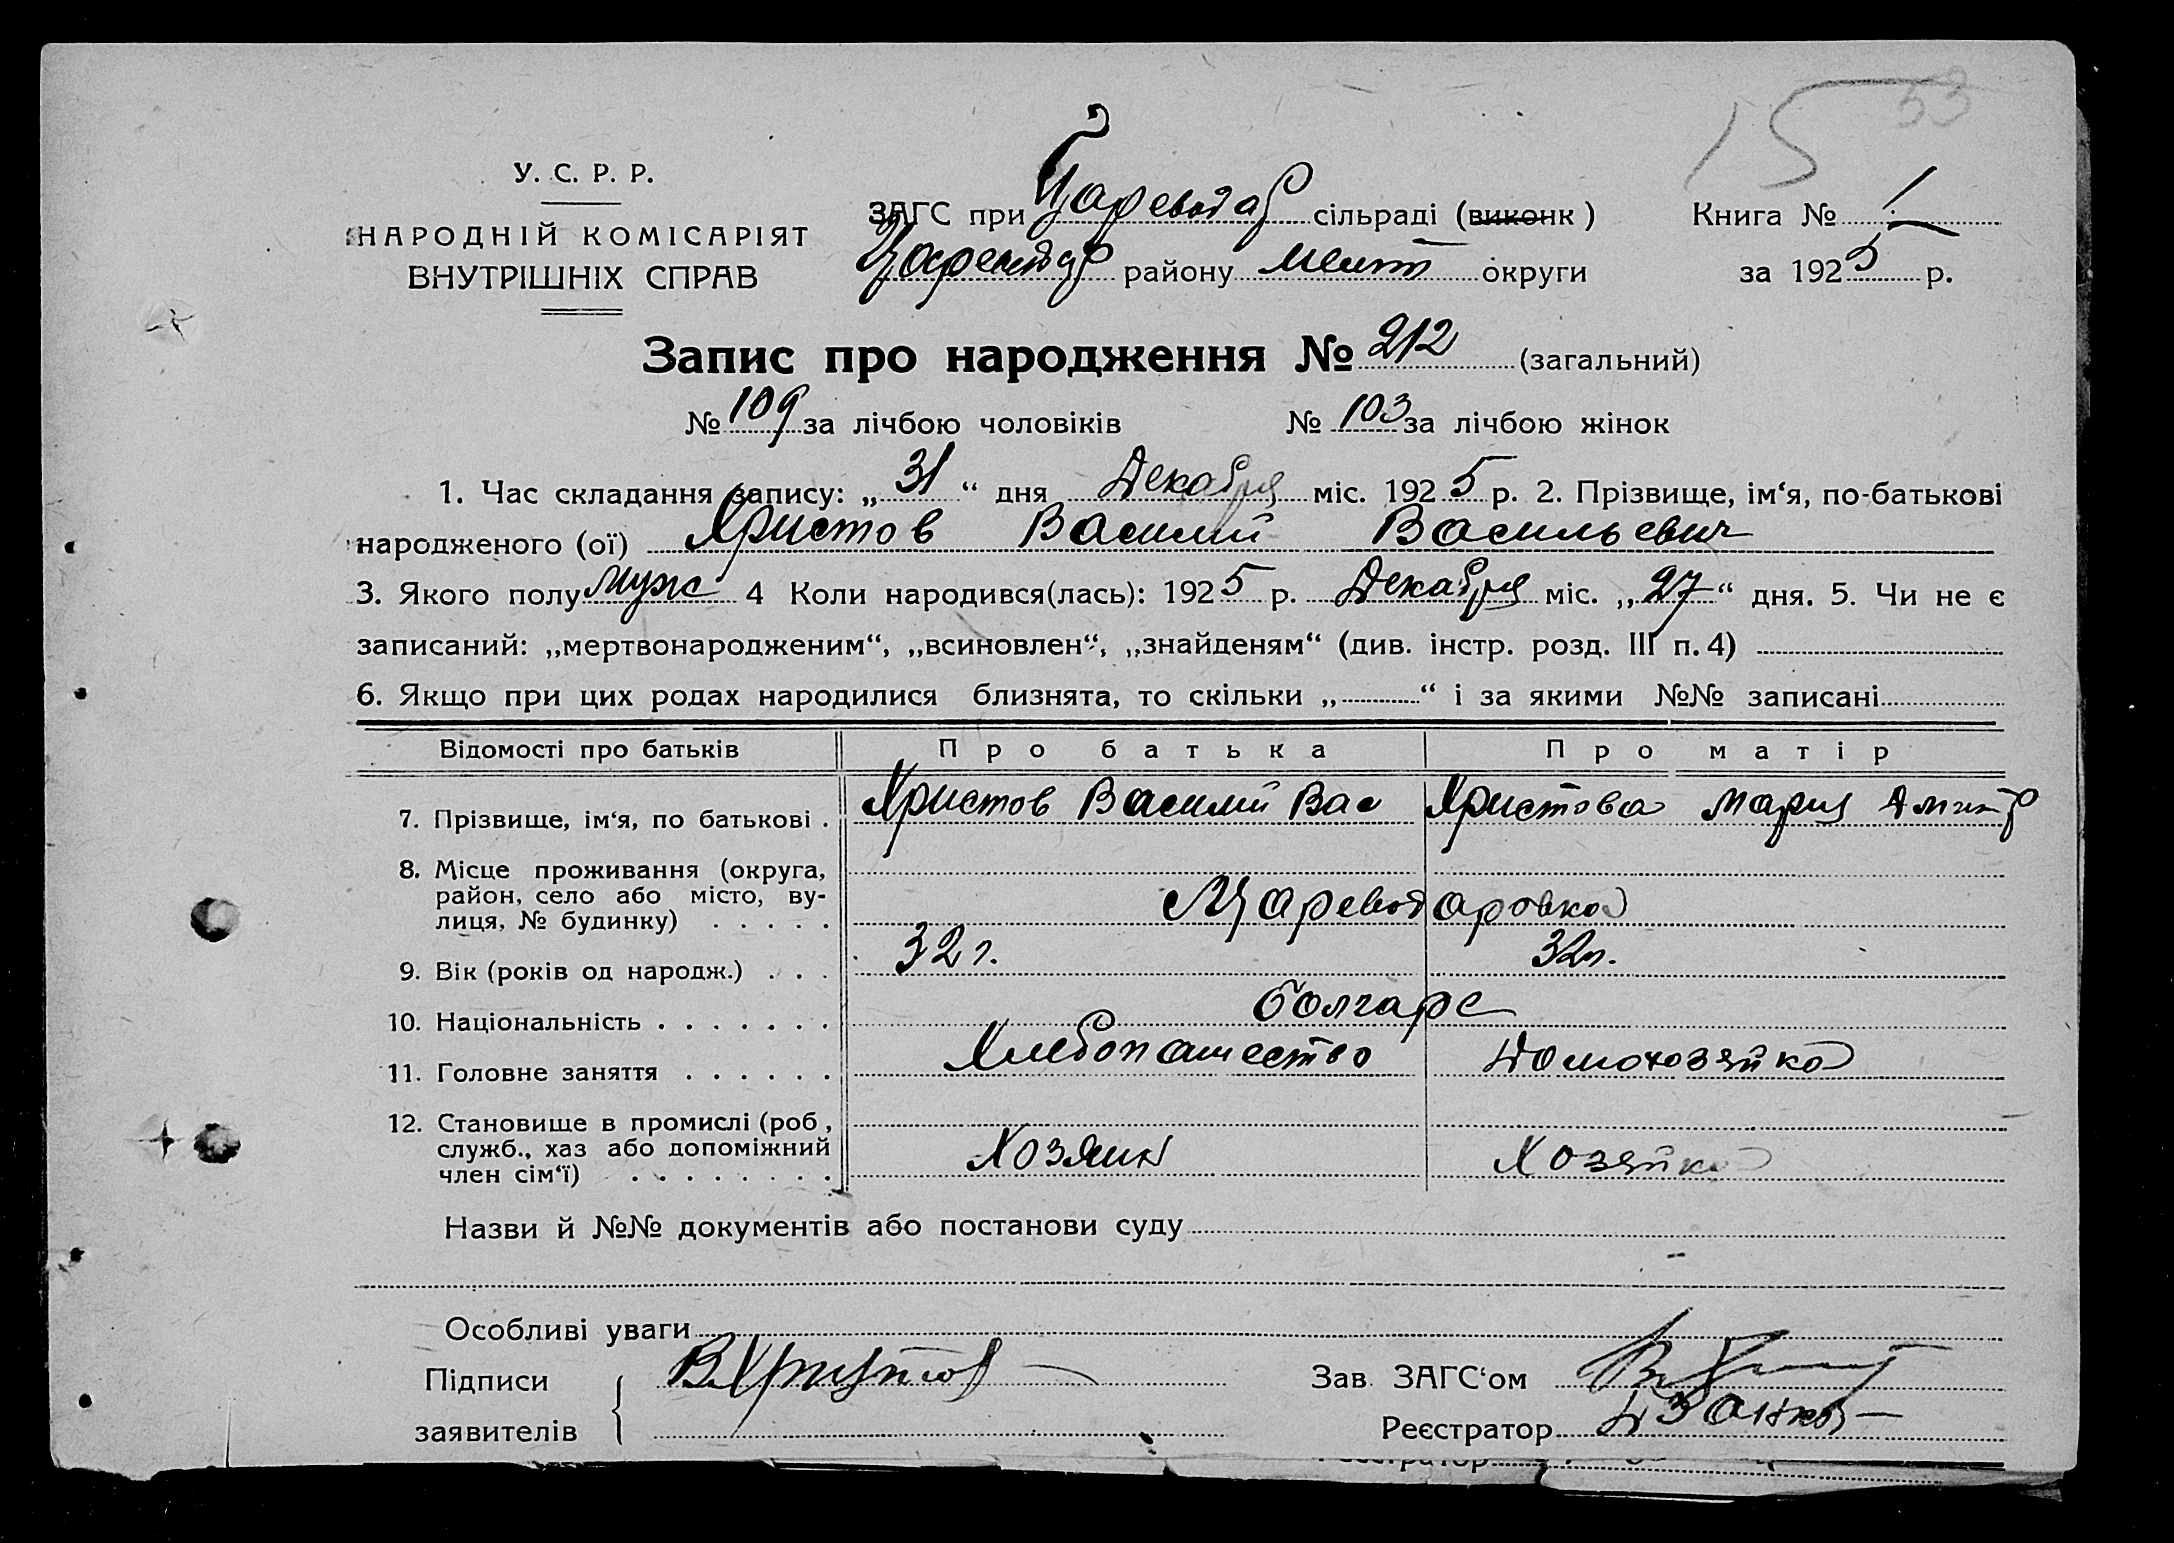 15 53
У. С. Р. Р.
НАРОДНІЙ КОМІСАРІЯТ
ВНУТРІШНІХ СПРАВ
ЗАГС при Цареводар сільраді (виконк)
району Мелит округи
Книга № 1
за 1925 р.
Запис про народження № 212 (загальний)
№ 109 за лічбою чоловіків № 103 за лічбою жінок
1. Час складання запису: „31“ дня Декабря міс. 1925 р. 2. Прізвище, ім‘я, по-батькові
народженого (ої) Христов Василий Васильевич
3. Якого полу муж 4 Коли народився(лась): 1925 р. Декабря міс. „27“ дня. 5. Чи не є
записаний: „мертвонародженим“, „всиновлен“, „знайденям“ (див. інстр. розд. III п. 4)
6. Якщо при цих родах народилися близнята, то скільки „ “ і за якими №№ записані
Відомості про батьків Про батька Про матір
7. Прізвище, ім‘я, по батькові . Христов Василий Вас Христова Мария Дмитр
8. Місце проживання (округа,
район, село або місто, ву-
лиця, № будинку) . . . . . Цареводаровка
9. Вік (років од народж.) . . . 32 г. 32 г.
10. Національність . . . . . . . болгаре
11. Головне заняття . . . . . . Хлебопашество Домохозяйка
12. Становище в промислі (роб ,
служб., хаз або допоміжний
член сім‘ї) . . . . . . . . Хозяин Хозяйка
Назви й №№ документів або постанови суду
Особливі уваги
Підписи
заявителів
В. Христов
Зав. ЗАГС‘ом
Реєстратор
Реєстратор